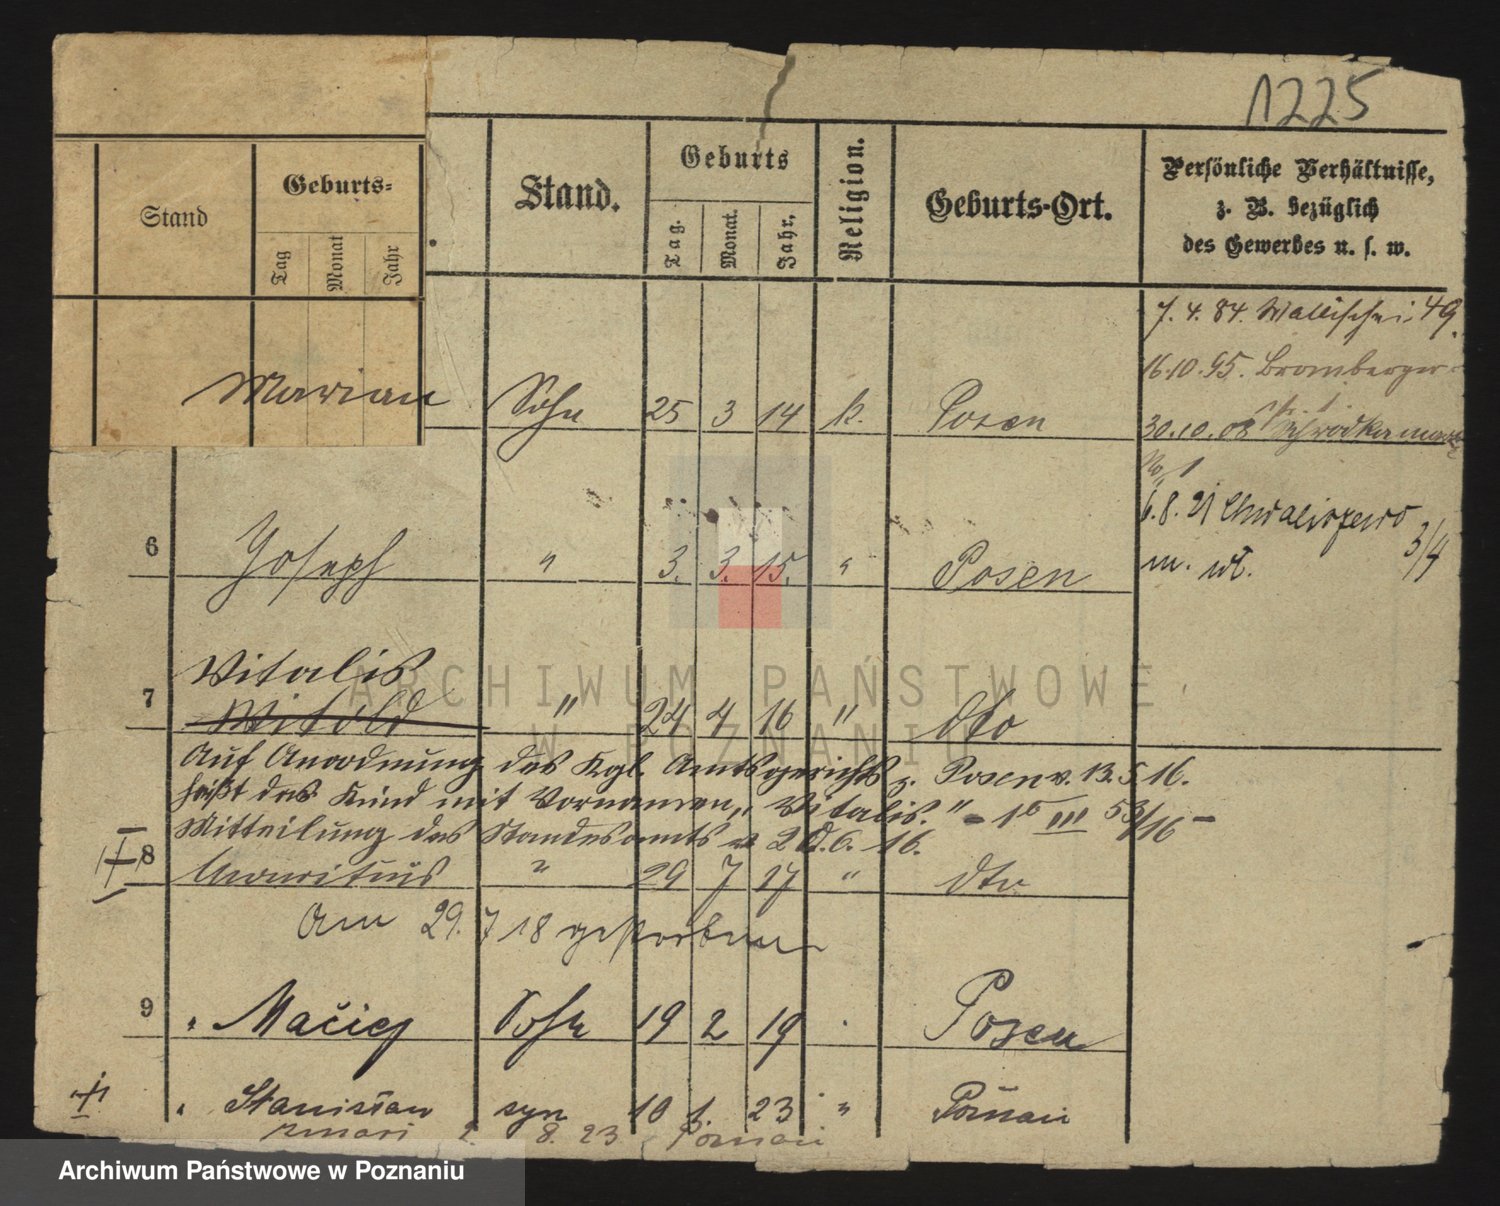 1225
Stand
Geburts-
Tag
Monat
Jahr
Stand.
Geburts
Tag.
Monat.
Jahr.
Religion.
Geburts-Ort.
Persönliche Verhältnisse,
z. B. bezüglich
des Gewerbes u. s. w.
7. 4. 84. Wallischei 49.
16.10.95. Bromberger-
str. 1.
30.10.08 Schrodkamarkt
No 1
6.8.21 Chwaliszewo
3/4
m. wł.
Marian Sohn 25 3 14 k. Posen
6 Joseph " 3. 3. 15. " Posen
Vitalis
7 Witold " 24 4 16 " dto
Auf Anordnung des Kgl. Amtsgerichts z. Posen v. 13.5.16.
heißt das Kind mit Vornamen „Vitalis."
Mitteilung des Standesamts v. 6. 16.
8 Mauritius " 29 7 17 " dto
Am 29. 7 18 gestorben
9 " Maciej Sohn 19 2 19 Posen
" Stanisław syn 10 1. 23 " Poznań
zmarł 2. 8. 23 Poznań
ARCHIWUM PAŃSTWOWE
W POZNANIU
Archiwum Państwowe w Poznaniu